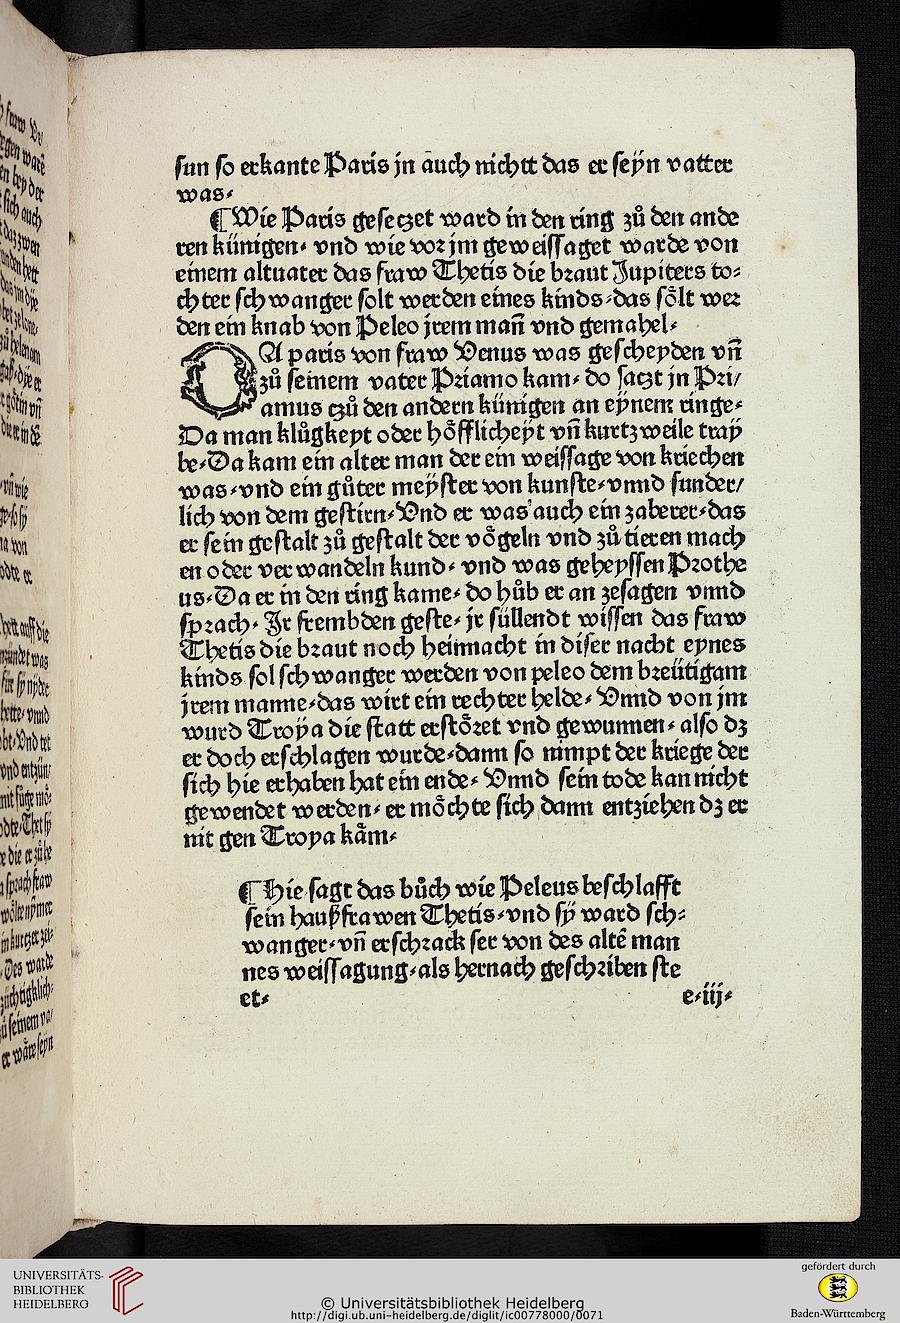 sun so erkante Paris jn auch nichtt das er seÿn vatter
was⸗
¶ Wie Paris geseczet ward in den ring zů den ande
ren künigen⸗ vnd wie vor jm geweissaget warde von
einem altuater das fraw Thetis die braut Jupiters to⸗
chter schwanger solt werden eines kinds⸗das sŏlt wer
den ein knab von Peleo jrem man̄ vnd gemahel⸗
DA paris von fraw Venus was gescheyden vn̄
zů seinem vater Priamo kam⸗ do saczt jn Pri/
amus czů den andern künigen an eÿnem ringe⸗
Da man klůgkeyt oder hŏfflicheÿt vn̄ kurtzweile traÿ
be⸗Da kam ein alter man der ein weissage von kriechen
was⸗vnd ein gůter meÿster von kunste⸗vnnd sunder/
lich von dem gestirn⸗Vnd er was auch ein zaberer⸗das
er sein gestalt zů gestalt der vŏgeln vnd zů tieren mach
en oder verwandeln kund⸗ vnd was geheyssen Prothe
us⸗Da er in den ring kame⸗ do hůb er an zesagen vnnd
sprach⸗ Jr frembden geste⸗ jr süllendt wissen das fraw
Thetis die braut noch heinnacht in diser nacht eynes
kinds sol schwanger werden von peleo dem breütigam
jrem manne⸗das wirt ein rechter helde⸗ Vnnd von jm
wurd Troÿa die statt erstŏret vnd gewunnen⸗ also dz
er doch erschlagen wurde⸗dann so nimpt der kriege der
sich hie erhaben hat ein ende⸗ Vnnd sein tode kan nicht
gewendet werden⸗ er mŏchte sich dann entziehen dz er
nit gen Troya kăm⸗
¶ Hie sagt das bůch wie Peleus beschlafft
sein haußfrawen Thetis⸗vnd sÿ ward sch⸗
wanger⸗vn̄ erschrack ser von des altē man
nes weissagung⸗als hernach geschriben ste
et⸗ e⸗iij⸗
UNIVERSITÄTS-
BIBLIOTHEK
HEIDELBERG
© Universitätsbibliothek Heidelberg
http://digi.ub.uni-heidelberg.de/diglit/ic00778000/0071
gefördert durch
Baden-Württemberg